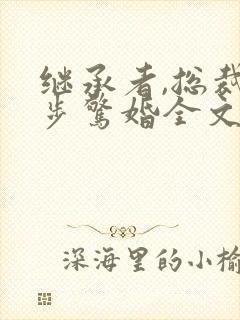 继承者,总裁
步惊婚全文
深海里的小榆